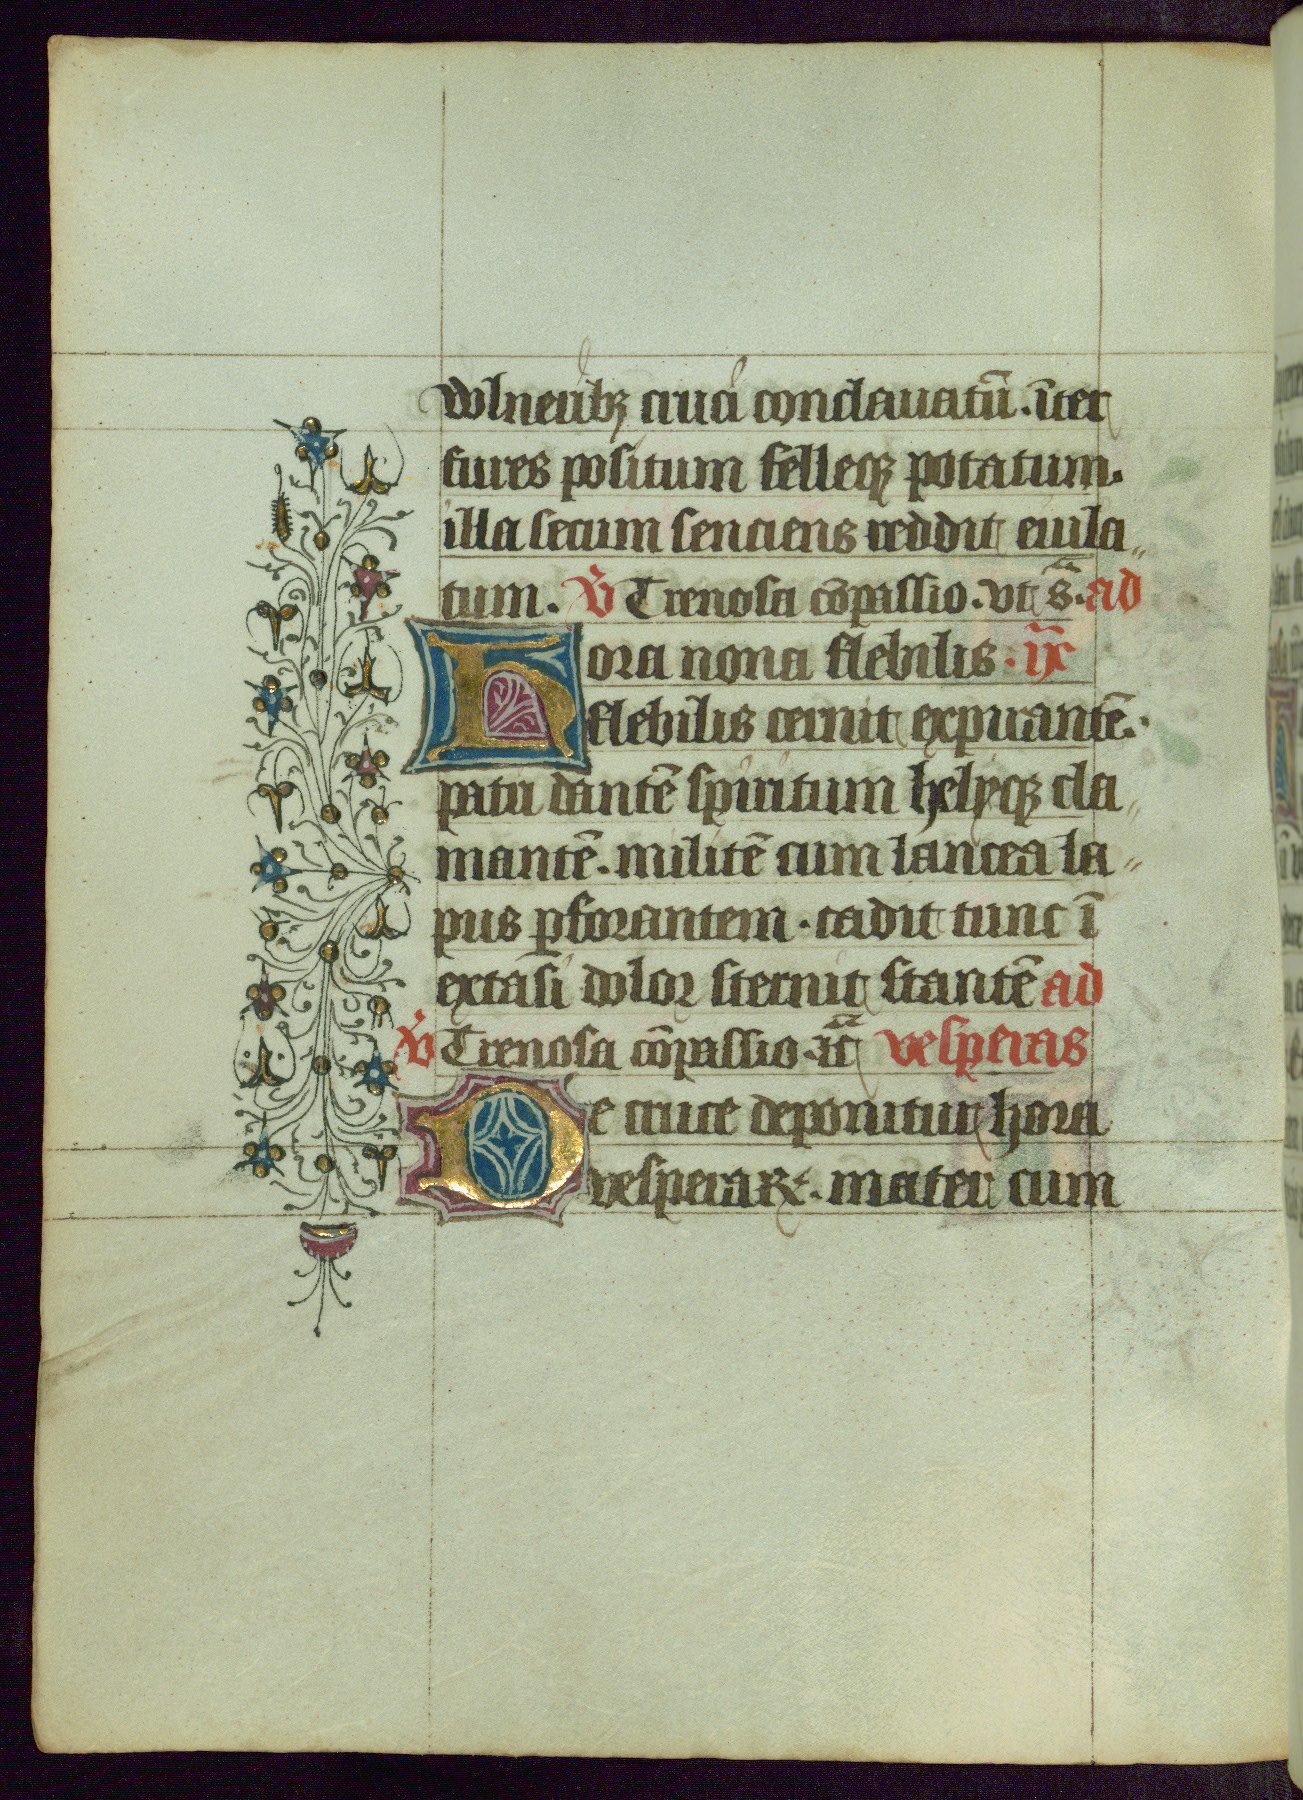 volnerib⁊ cruci conclauatū. īter
fures positum felleq⁊ potatum.
illa secum senciens reddit eiula„
tum. v̄ Trenosa cōpassio. vt s̄. ad
hora nona flebilis. ix̄
flebilis cernit expirantē.
patri dantē spiritum helyq⁊ cla„
mantē. militē cum lancea la„
pus ꝑforantem. cadit tunc ī
extasi dolor sternit stantē ad
v̄ Trenosa cōpassio. ut̄ vesperas
De cruce deponitur hora
vesperaꝝ. mater cum